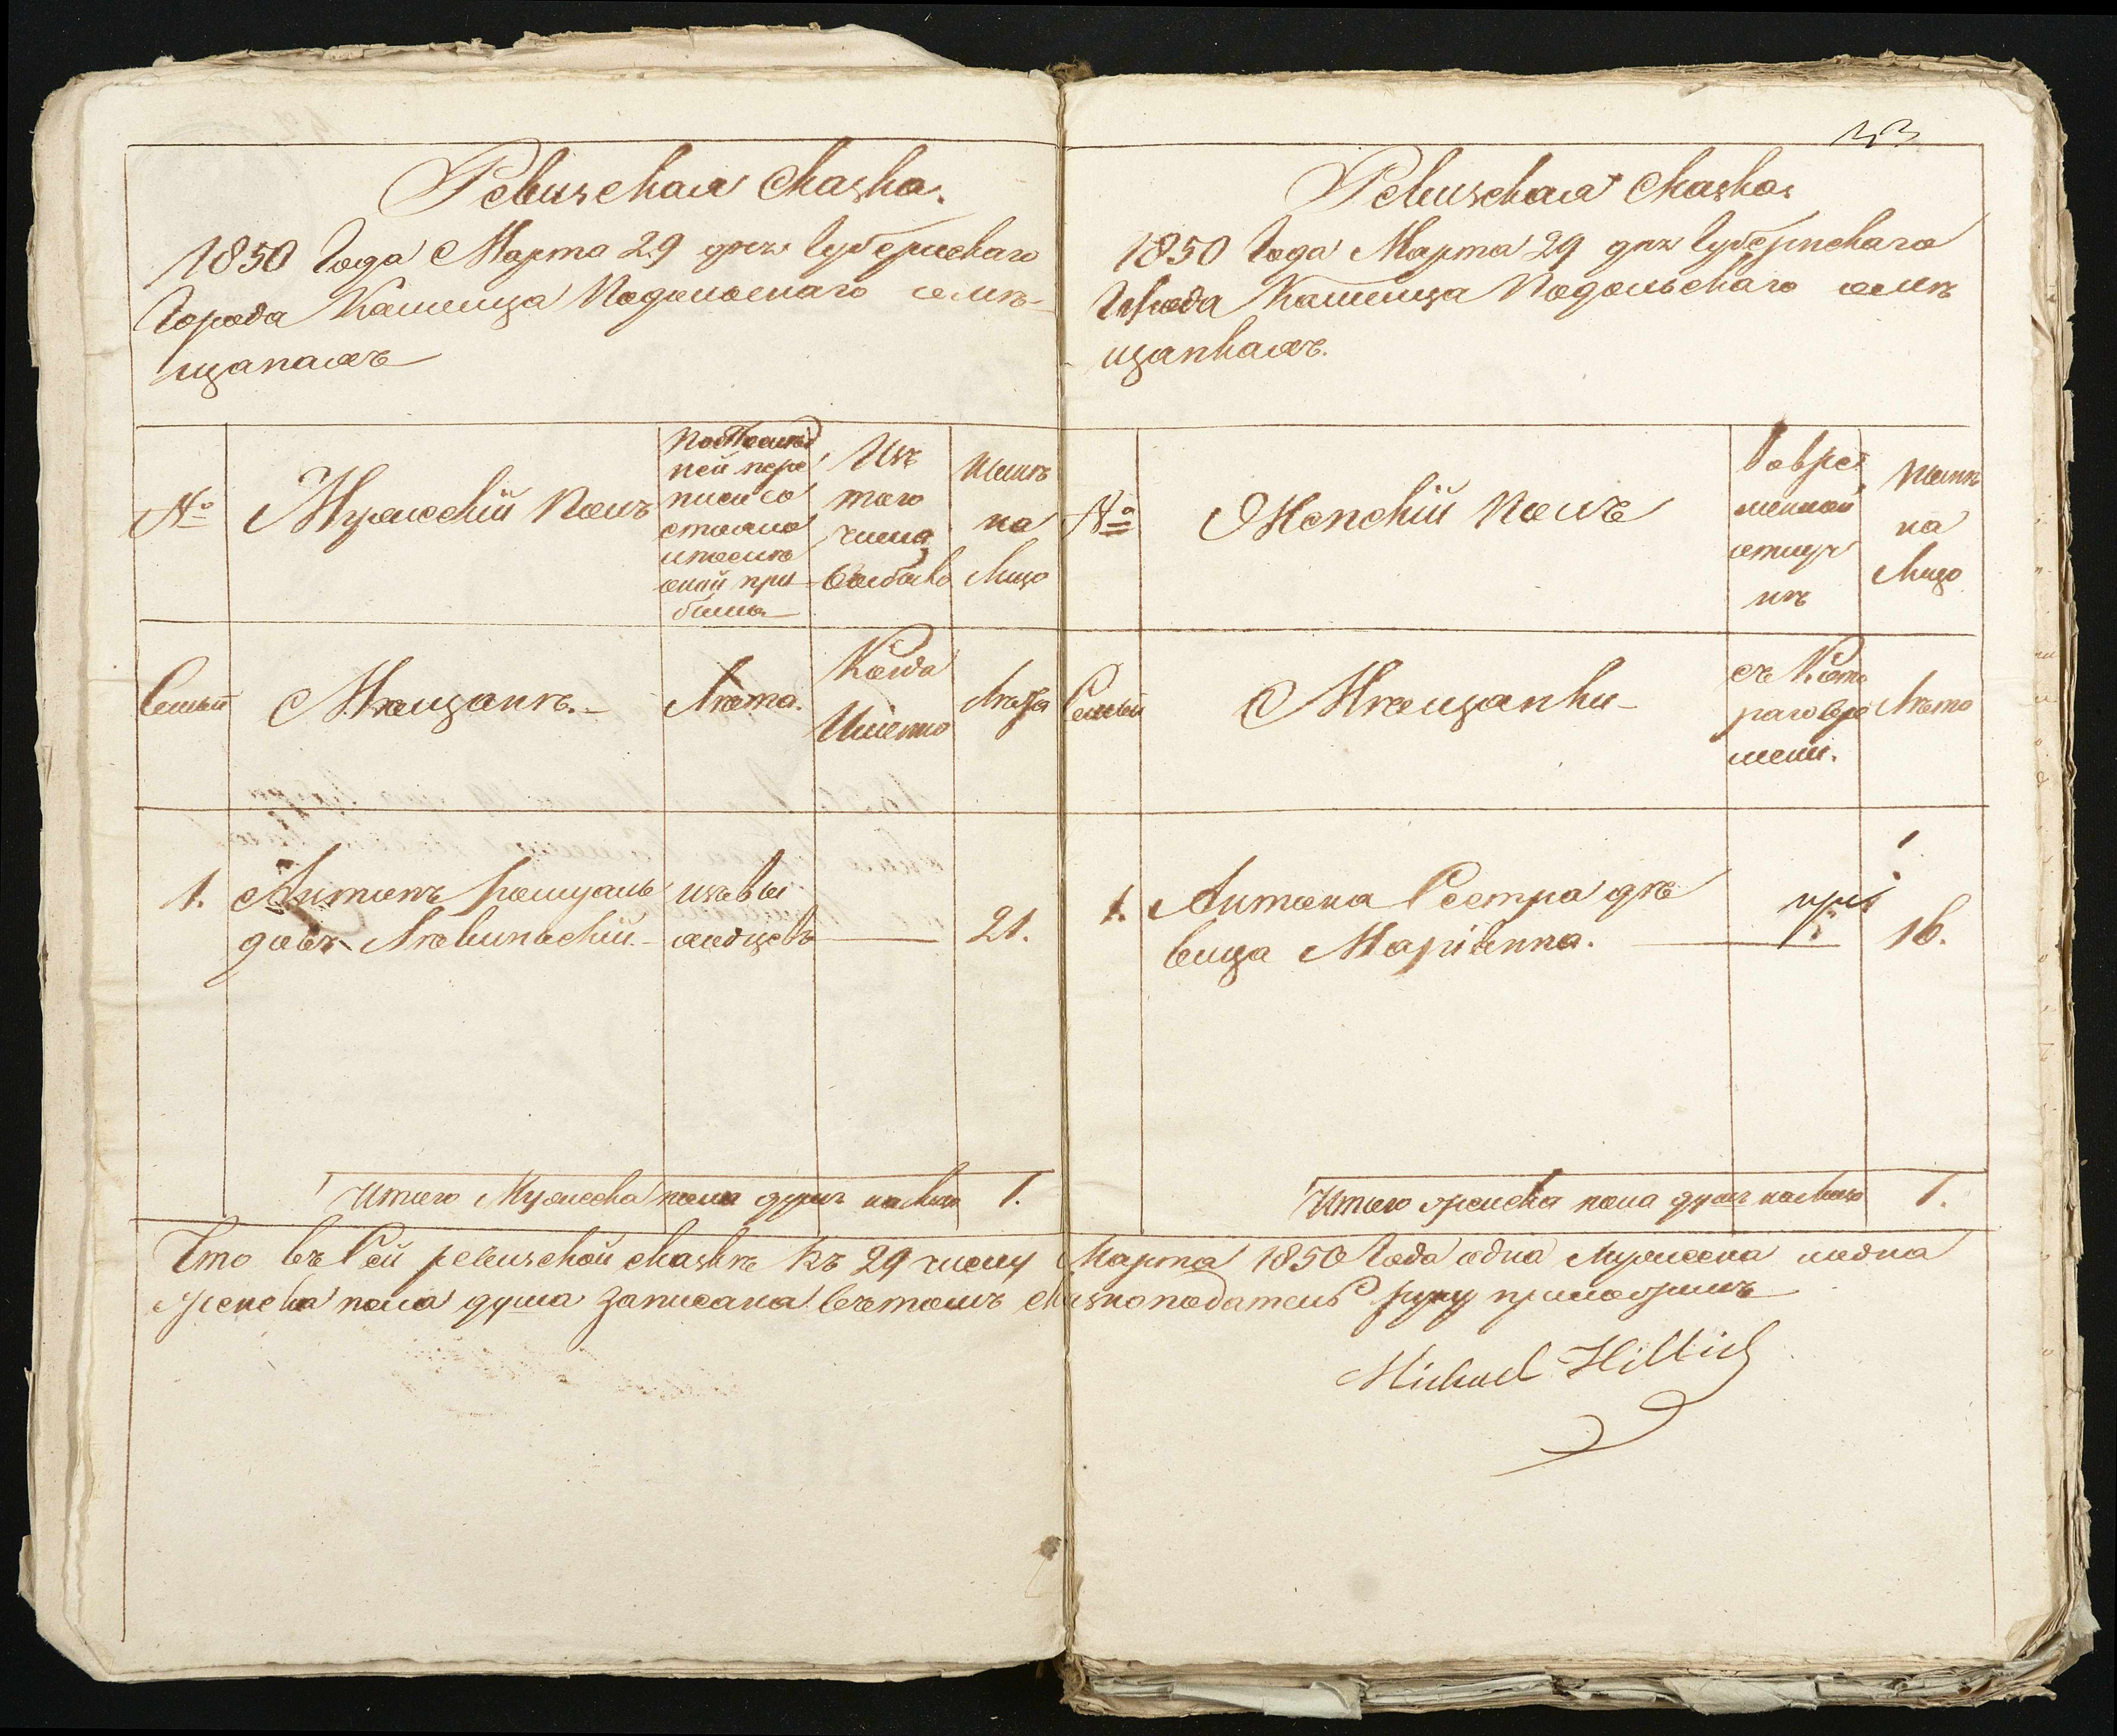 Ревизская сказка.
1850 Года Марта 29 дня Губернскаго
Города Каменца Подольскаго о мѣ-
щанахъ
№ Мужескій Полъ
По Послѣд
ней пере
писи со
стояло
и после
оной при
было
Изъ
того
числа
Выбыло
Нынѣ
на
Лицо
Семьи Мѣщанѣ. Лѣта. Когда
Имѣнно
Лѣта
1. Антонъ Ромуаль изъ вы
довъ Левинскій. ходцевъ 21.
Итого Мужеска пола душъ на лицо 1.
33
Ревизская сказка
1850 Года Марта 29 дня Губернскаго
Города Каменца Подольскаго о мѣ
щанкахъ.
№ Женскій Полъ
Во вре
менной
отлуч
кѣ
Нынѣ
на
Лицо
Семьи Мѣщанки
съ Кото
раго вре
мени.
Лѣта
1
1. Антона Сестра дѣ
вица Маріанна. 16.
Итого женска пола душъ на лицо 1.
Что въ Сей ревизской сказкѣ къ 29 числу Марта 1850 Года одна Мужеска и одна
женска пола душа записана въ томъ сказкоподатель руку приложилъ
Michael Hillich